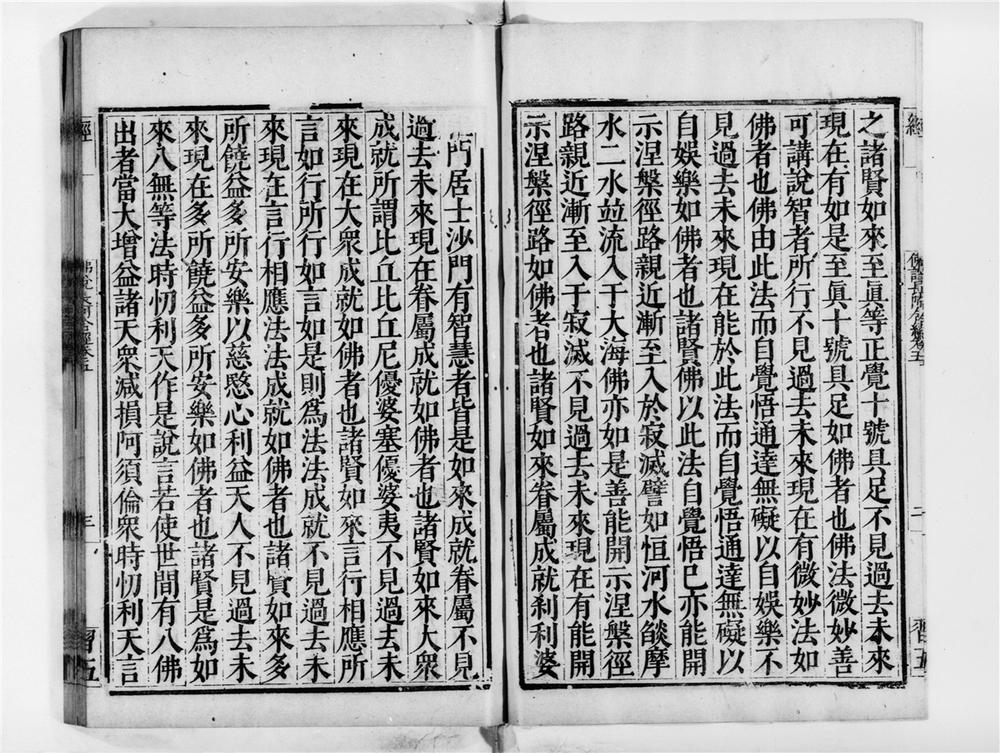 經
佛說長阿含經卷五
二
習五
之諸賢如來至真等正覺十號具足不見過去未來
現在有如是至真十號具足如佛者也佛法微妙善
可講說智者所行不見過去未來現在有微妙法如
佛者也佛由此法而自覺悟通達無礙以自娛樂不
見過去未來現在能於此法而自覺悟通達無礙以
自娛樂如佛者也諸賢佛以此法自覺悟已亦能開
示涅槃徑路親近漸至入於寂滅譬如恒河水燄摩
水二水竝流入于大海佛亦如是善能開示涅槃徑
路親近漸至入于寂滅不見過去未來現在有能開
示涅槃徑路如佛者也諸賢如來眷屬成就剎利婆
門居士沙門有智慧者皆是如來成就眷屬不見
過去未來現在眷屬成就如佛者也諸賢如來大衆
成就所謂比丘比丘尼優婆塞優婆夷不見過去未
來現在大衆成就如佛者也諸賢如來言行相應所
言如行所行如言如是則爲法法成就不見過去未
來現在言行相應法法成就如佛者也諸賢如來多
所饒益多所安樂以慈愍心利益天人不見過去未
來現在多所饒益多所安樂如佛者也諸賢是爲如
來八無等法時忉利天作是說言若使世間有八佛
出者當大增益諸天衆減損阿須倫衆時忉利天言
經
佛說長阿含經卷五
三
習五